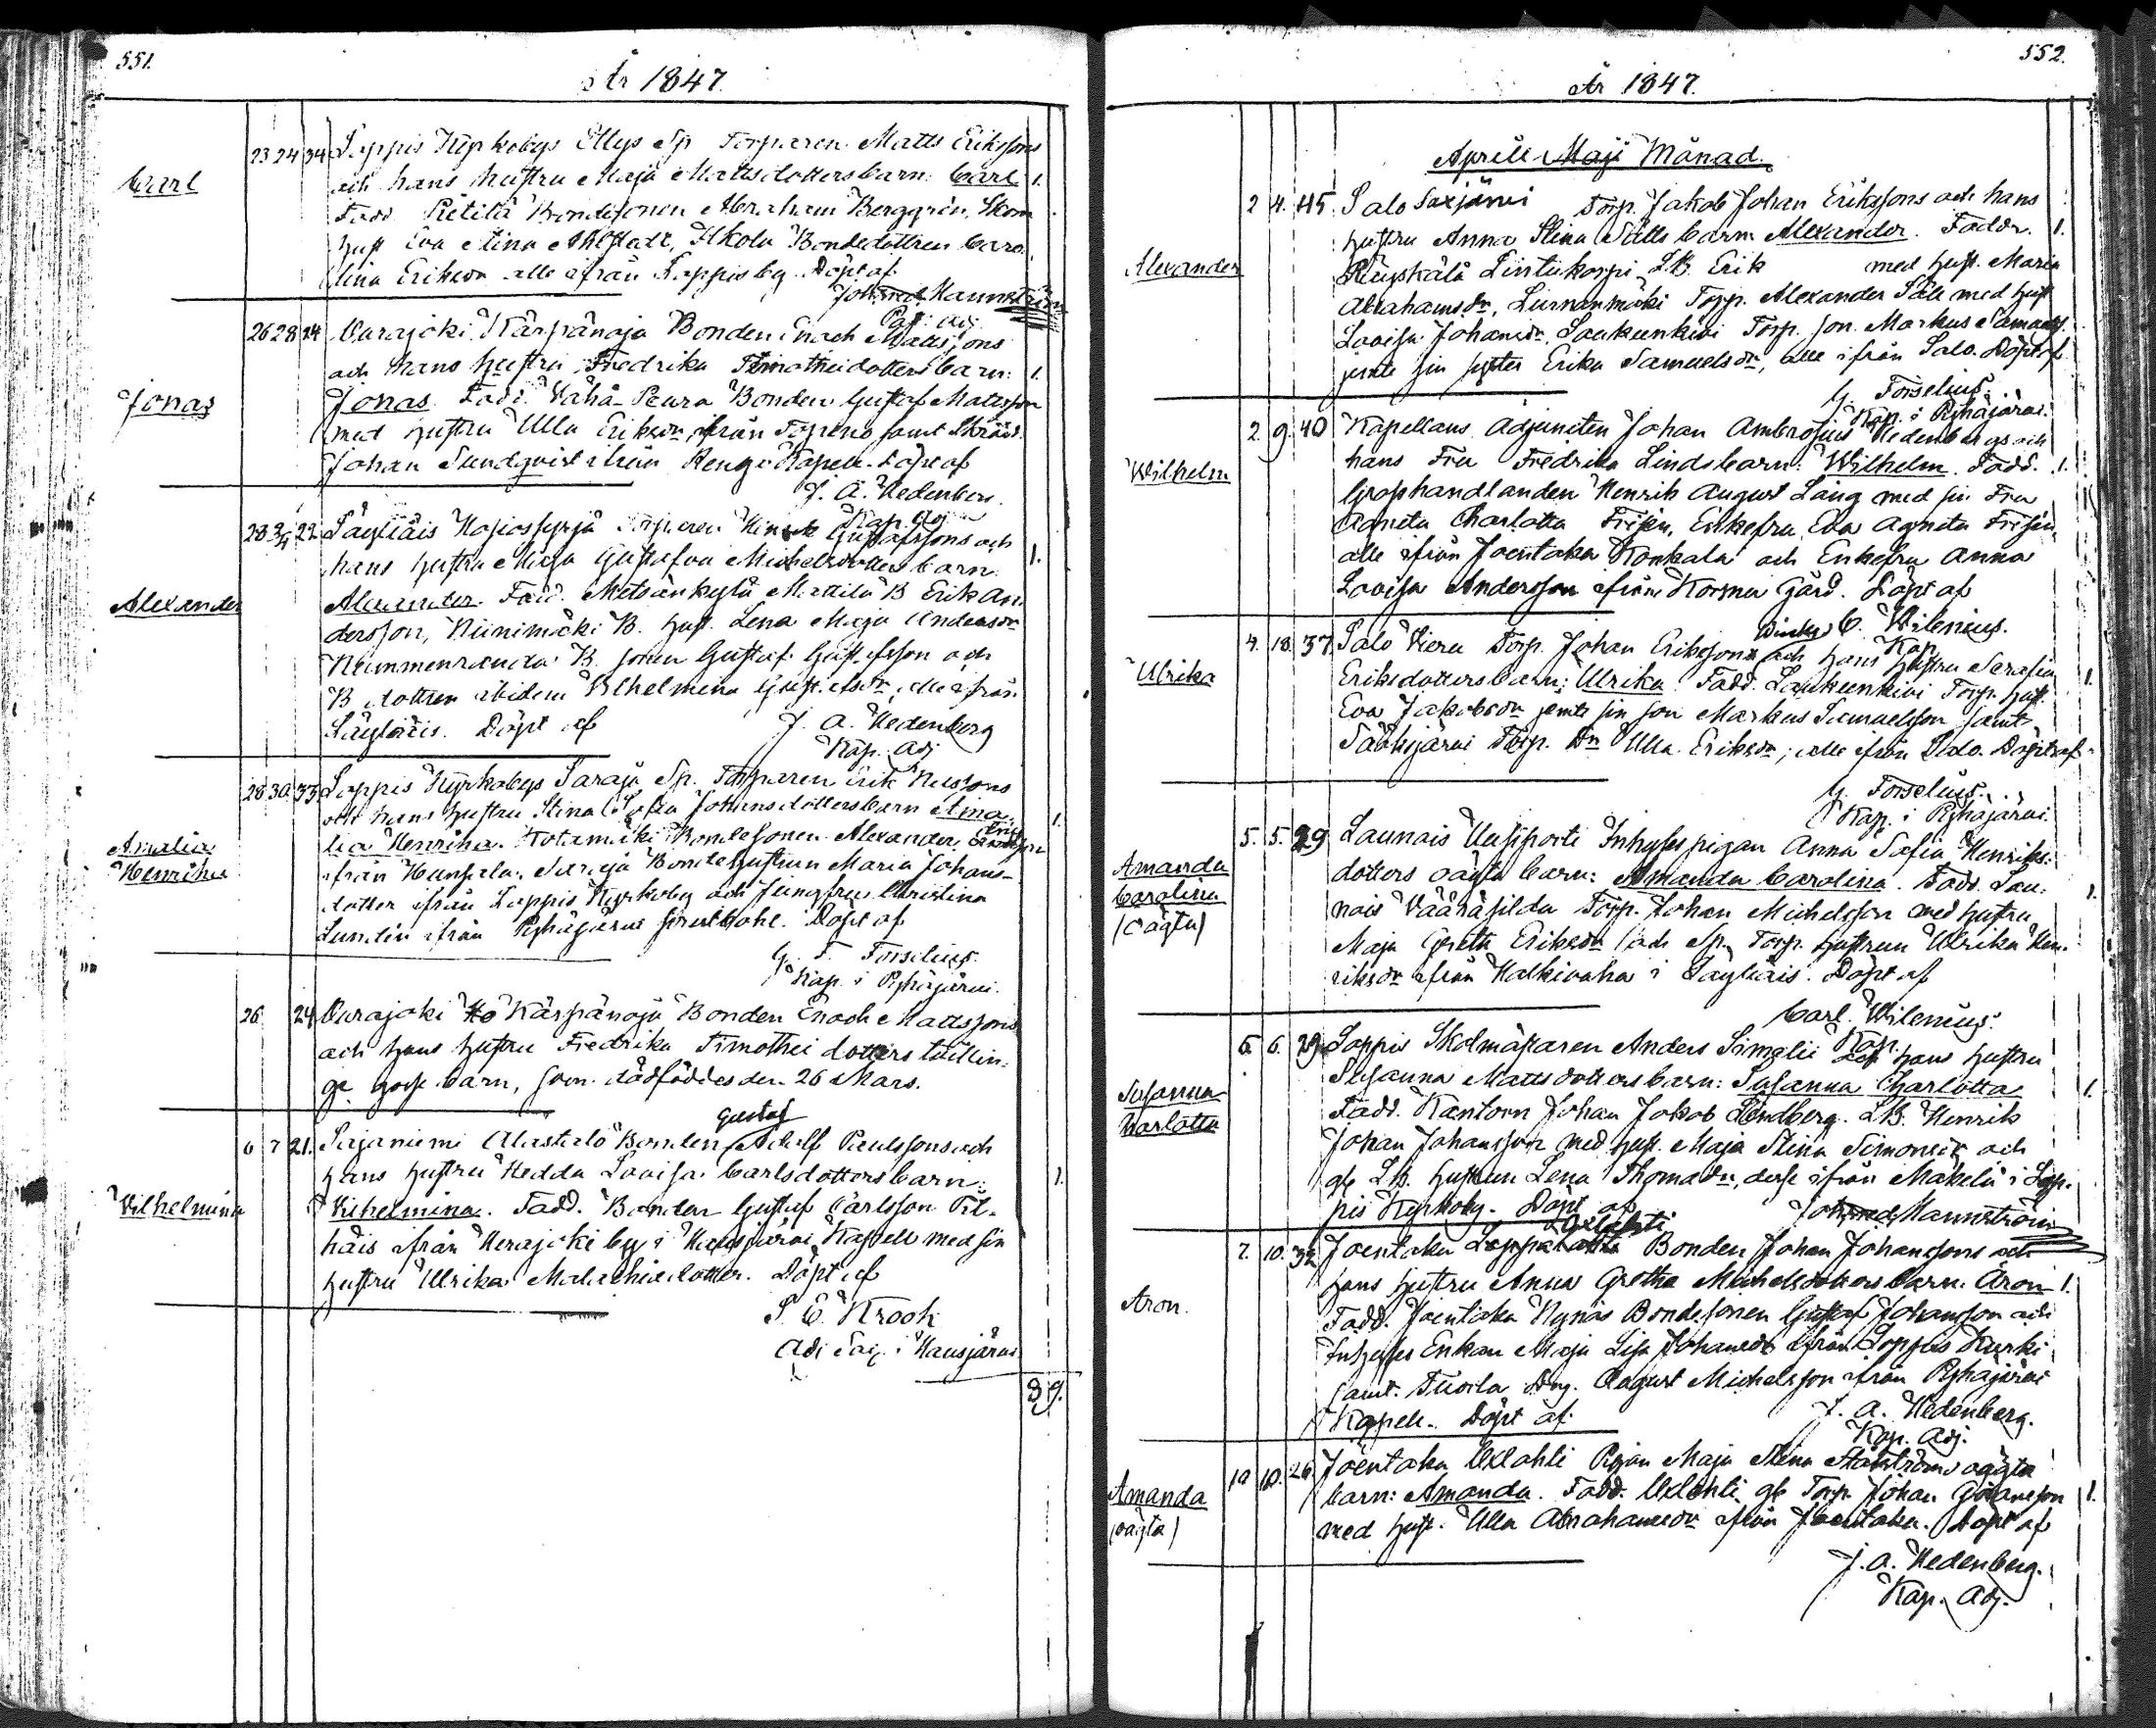 551.
År 1847.
Carl
23 24 34 Loppis Kyrkobys Ellys Sp Torparen Matts Erikssons
och hans hustru Maja Mattsdotters barn: Carl 1.
Fadd. Pietilä Bondesonen Abraham Berggrén, Skom
hust Eva Stina Ahlstedt, Ikola Bondedottren Caro
lina Eriksdr alla ifrån Loppis by. Döpt af
Joh. Mannström
Past: adj.
Jonas
26 28 24 Ourajoki Kärpänoja Bonden Enoch Mattssons
och hans hustru Fredrika Timotheidotters barn: 1.
Jonas. Fadd. Vähä-Peura Bonden Gustaf Mattsson
med hustru Ulla Eriksdr, ifrån Topeno samt
Johan Sundqvist ifrån Rengo Kapell. Döpt af
J. A. Hedenberg
Kap. Adj
Alexander
28 3/4 22 Läyliäis Torparen Henrik Gustafssons och
hans hustru Maja Gustafva Michelsdotters barn 1.
Alexander. Fadd. Metsänkylä Mattila B Erik An
dersson, Niinimäki B. hust. Lena Maja Andersdr
Nummenranda B. sonen Gustaf Gust.afsson och
B dottren ibidem Vilhelmina Gust.afsdr, alla ifrån
Läyliäis. Döpt af J. A. Hedenberg
Kap. Adj
Amalia
Henrika
28 30 33 Loppis Kyrkobys Saraja Sp. Torparen Erik
och hans hustru Stina Johansdotters barn Ama 1.
lia Henrika. Kotamäki Bondesonen Alexander
ifrån Hunsala, Saraja Bondehustrun Maria Johans-
dotter ifrån Loppis Kyrkoby och Jungfrun Christina
Lundin ifrån Pyhäjärvi Döpt af
G. F. Forselius.
Kap. i Pyhäjärvi.
26 24 Ourajoki Kärpänoja Bonden Enoch Mattssons
och hans hustru Fredrika Timothei dotters tvillin
ge gosse barn, som dödföddes den 26 Mars.
Gustaf
Wilhelmina
6 7 21. Sajaniemi Alastalo Bonden Adolf Paulssons och
hans hustru Hedda Lovisa Carlsdotters barn: 1.
Vilhelmina. Fadd. Bonden Gustaf Carlsson Pil-
häis ifrån Herajoki by i Hausjärvi Kapell med sin
hustru Ulrika Malachiædotter. Döpt af
S. E. Krook
Adj Sac. i Hausjärvi
39.
552.
År 1847.
Aprill Maji Månad.
Alexander
2 4. 45. Salo Saxjärvi Torp. Jakob Johan Erikssons och hans
hustru Anna Stina Sälls barn: Alexander. Faddr. 1.
Räyskälä Lintukorpi L.B. Erik med hust. Maria
Abrahamsdr, Liunanmäki Torp. Alexander Säll med hust
Lovisa Johansdr, Laukeenkivi Torp. son. Markus Samuelss.
jemte sin syster Erika Samuelsdr, alle ifrån Salo. Döpt af
G. Forselius.
Kap. i Pyhäjärvi.
Wilhelm
2. 9. 40 Kapellans Adjuncten Johan Ambrosius Hedenbergs och
hans Fru Fredrika Lindsbarn: Wilhelm. Fadd. 1.
Grosshandlanden Henrik August Lång med sin Fru
Agneta Charlotta Frisén, Enkefru Eva Agneta Frisén,
alle ifrån Joentaka Konkala och Enkefru Anna
Lovisa Andersson ifrån Kormu Gård. Döpt af
C. Wilenius.
Kap.
Ulrika
4. 18. 37 Salo Viera Torp. Johan Erikssons och hans hustru Serafia
Eriksdotters barn: Ulrika. Fadd. Laukeenkivi Torp. hust. 1.
Eva Jakobsdr jemte sin son Markus Samuelsson samt
Sääksjärvi Torp. Dr Ulla Eriksdr; alle ifrån Salo. Döpt af
G. Forselius.
Kap. i Pyhäjärvi.
Amanda
Carolina
(oägta)
5. 5. 29 Launois Uusiporti Inhyses pigan Anna Sofia Henriks-
dotters oägta barn: Amanda Carolina. Fadd. Lau- 1.
nois Vääräsilda Torp. Johan Michelsson med hustru
Maja Greta Eriksdr och Sp. Torp. hustrun Ulrika Hen-
riksdr ifrån Halkivaha i Läyliäis. Döpt af
Carl. Wilenius.
Kap.
Susanna
Carlotta
6. 6. 29 Loppis Skolmästaren Anders Simelii och hans hustru
Susanna Mattsdotters barn: Susanna Charlotta 1.
Fadd. Kantorn Johan Jakob Lindberg. L.B. Henrik
Johan Johansson med hust. Maja Stina Simonsdr och
gb L.B. hustrun Lena Thomædr, desse ifrån Mäkelä i Lop-
pis Kyrkoby. Döpt af Joh. Mannström
Aron.
Uxlahti
7. 10. 32 Joentaka Bonden Johan Johanssons och
hans hustru Anna Gretha Michelsdotters barn: Aron 1.
Fadd. Joentaka Nynäs Bondesonen Gustaf Johansson och
Inhyses Enkan Maja Lisa Johansdr ifrån Loppis Kurki
samt. Tuoila Drg. August Michelsson ifrån Pyhäjärvi
Kapell. Döpt af J. A. Hedenberg.
Kap. Adj.
Amanda
(oägta)
10 10. 26 Joentaka Uxlahti Pigan Maja Stina oägta
barn: Amanda. Fadd. Uxlahti gb Torp. Johan Johansson 1.
med hust. Ulla Abrahamsdr ifrån Joentaka. Döpt af
J. A. Hedenberg.
Kap. Adj.